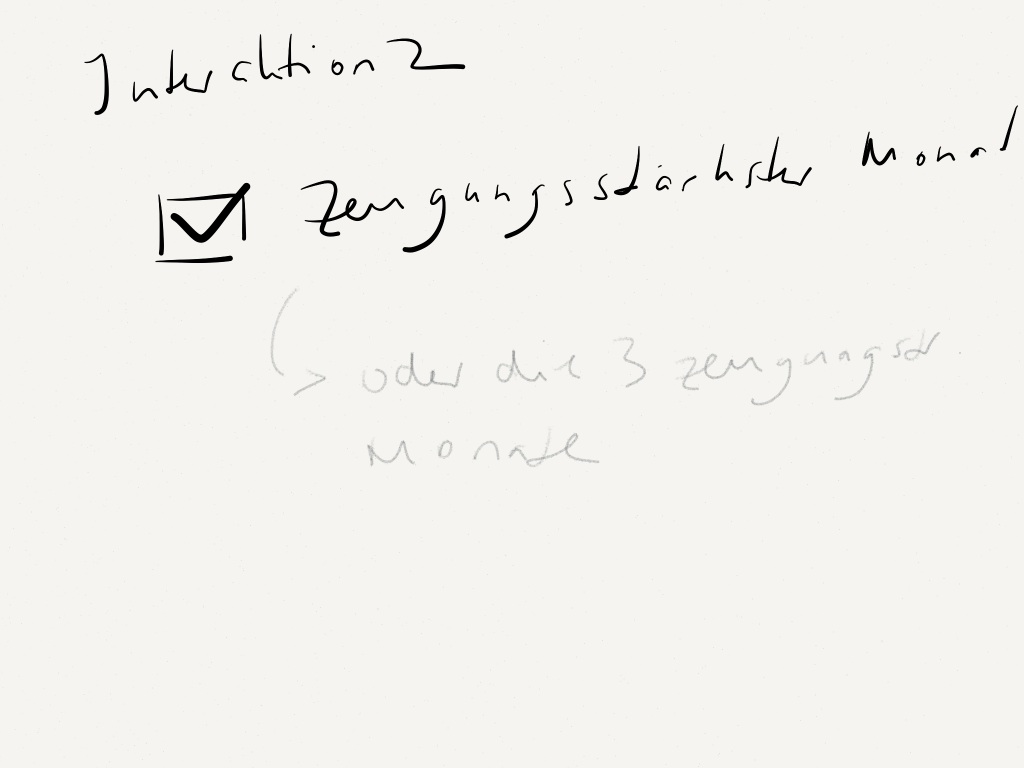 Interaktion 2
☑ Zeugungsstärkster Monat
↳ oder die 3 zeugungsst.
Monate